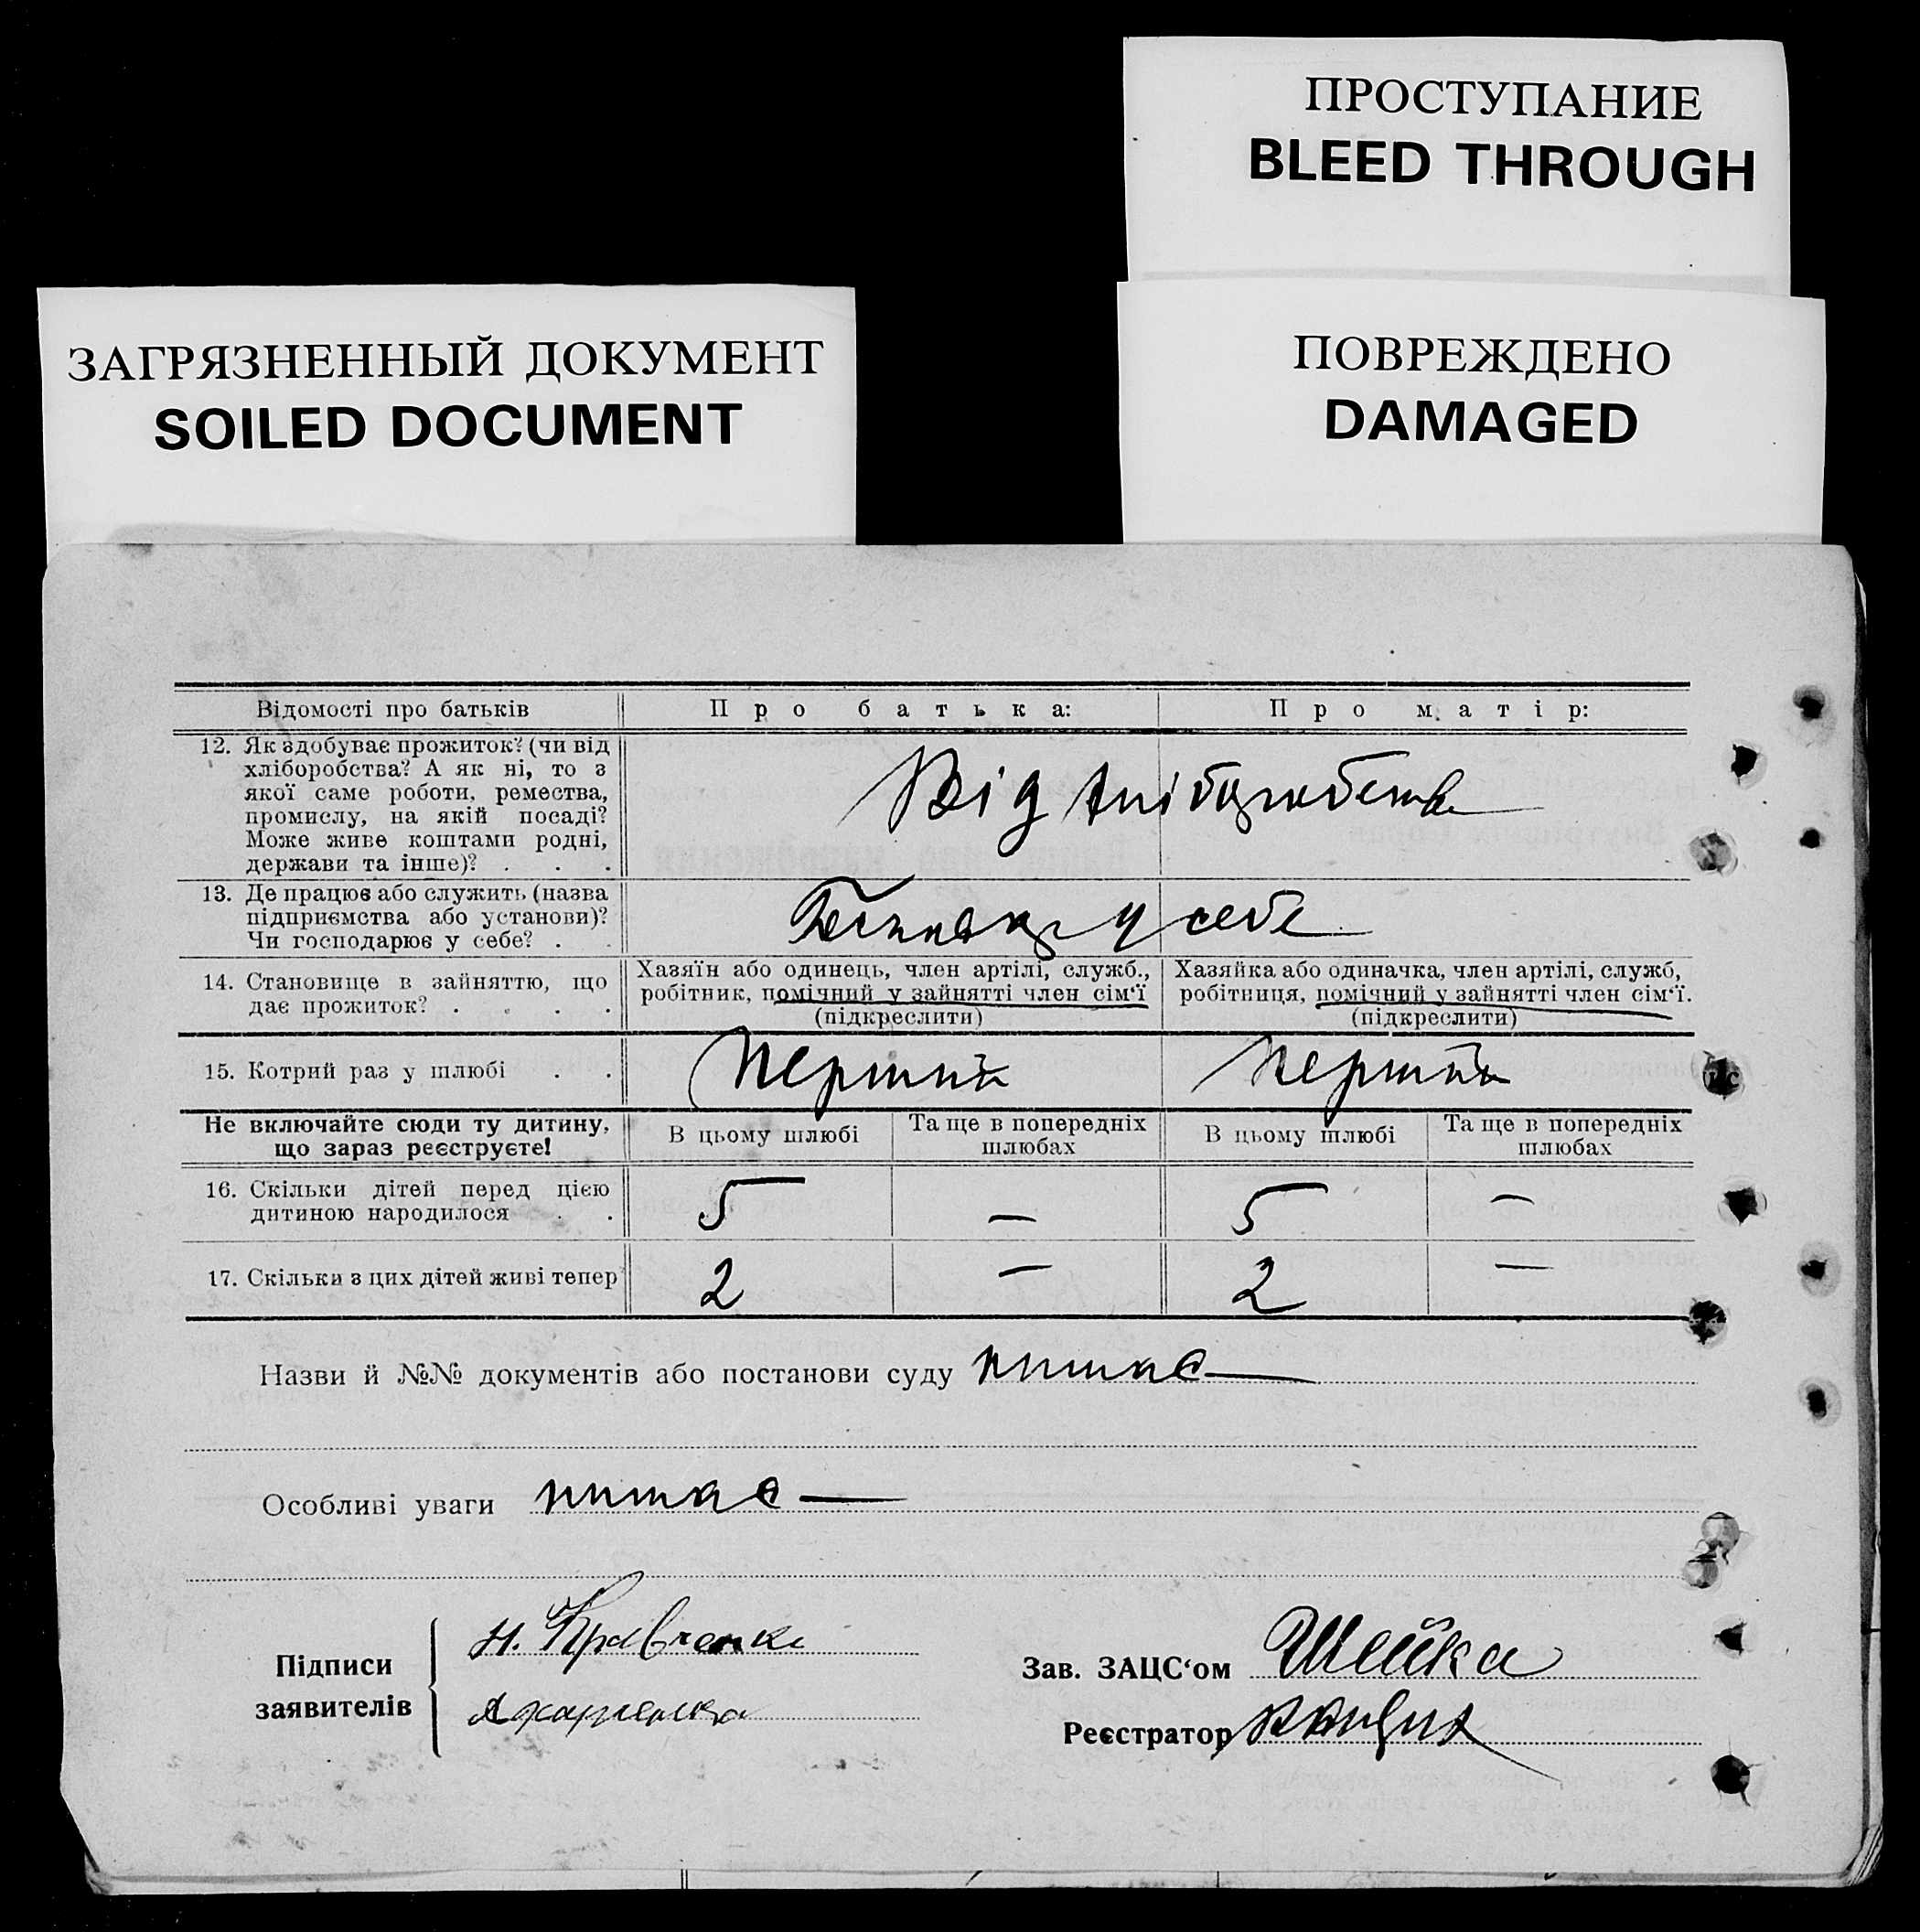 ПРОСТУПАНИЕ
BLEED THROUGH
ЗАГРЯЗНЕННЫЙ ДОКУМЕНТ
SOILED DOCUMENT
ПОВРЕЖДЕНО
DAMAGED
Відомості про батьків
Про батька:
Про матір:
12. Як здобуває прожиток? (чи від
хліборобства? А як ні, то з
якої саме роботи, ремества,
промислу, на якій посаді?
Може живе коштами родні,
держави та інше)? . . .
Від хліборобства
13. Де працює або служить (назва
підприємства або установи)?
Чи господарює у себе? . .
у себе
14. Становище в зайняттю, що
дає прожиток? . . . .
Хазяїн або одинець, член артілі, служб.,
робітник, помічний у зайнятті член сім‘ї
(підкреслити)
Хазяйка або одиначка, член артілі, служб,
робітниця, помічний у зайнятті член сім‘ї.
(підкреслити)
15. Котрий раз у шлюбі . .
Перший
Перший
Не включайте сюди ту дитину,
що зараз реєструєте!
В цьому шлюбі
Та ще в попередніх
шлюбах
В цьому шлюбі
Та ще в попередніх
шлюбах
16. Скільки дітей перед цією
дитиною народилося . .
5
—
5
—
17. Скільки з цих дітей живі тепер
2
—
2
—
Назви й №№ документів або постанови суду немає —
Особливі уваги немає —
Підписи
заявителів
Н. Кравченко
Зав. ЗАЦС‘ом Шейка
Реєстратор